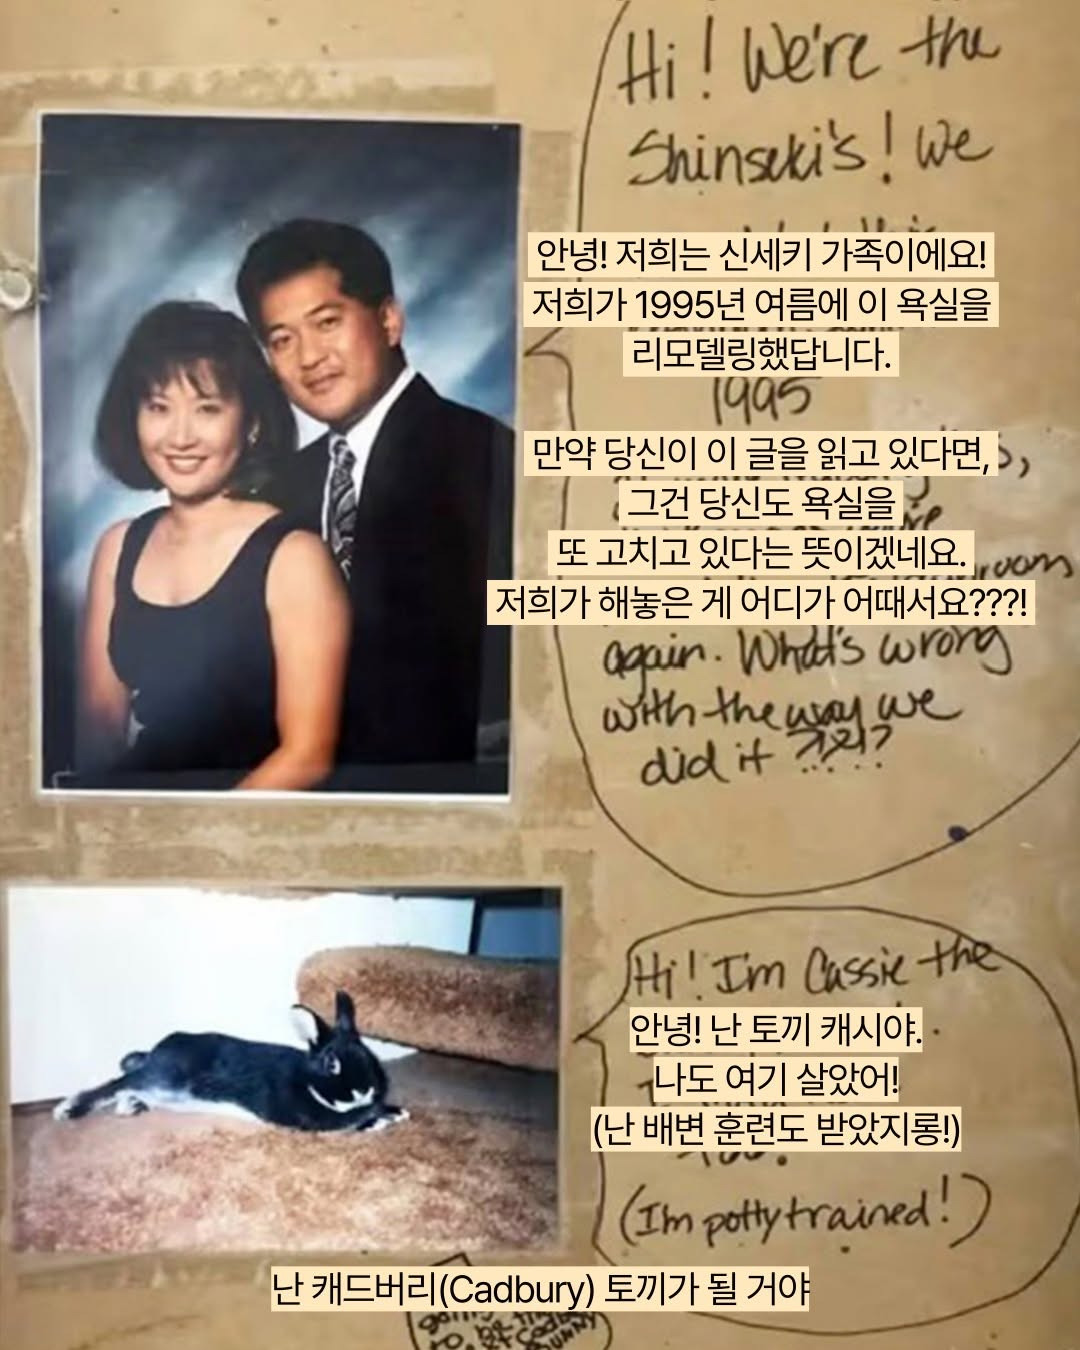 Hi! We're the
Shinseki's! We
안녕! 저희는 신세키 가족이에요!
저희가 1995년 여름에 이 욕실을
리모델링했답니다.
1995
만약 당신이 이 글을 읽고 있다면,
그건 당신도 욕실을
또 고치고 있다는 뜻이겠네요.
저희가 해놓은 게 어디가 어때서요???!
again. What's wrong
with the way we
did it ??!?
Hi! I'm Cassie the
안녕! 난 토끼 캐시야.
나도 여기 살았어!
(난 배변 훈련도 받았지롱!)
too.
(I'm potty trained!)
난 캐드버리(Cadbury) 토끼가 될 거야
to be the
Cadbury
BUNNY